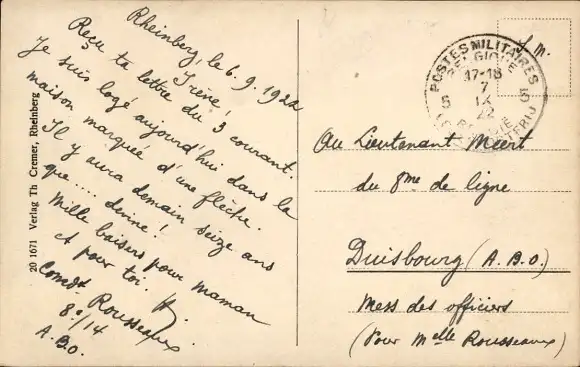 Rheinberg, le 6.9.1922
Irène!
Reçu ta lettre du 3 courant.
Je suis logé aujourd'hui dans la
maison marquée d'une flèche.
Il y aura demain seize ans
que.... devine!
Mille baisers pour maman
et pour toi.
Comdt Rousseaux
8e/14
A.B.O.
20 1671 Verlag Th Cremer, Rheinberg
S. M.
POSTES MILITAIRES
BELGIQUE
17-18
7
IX
22
5 5
Au Lieutenant Meert
du 8me de ligne
Duisbourg (A.B.O.)
Mess des officiers
(Pour Melle Rousseaux)